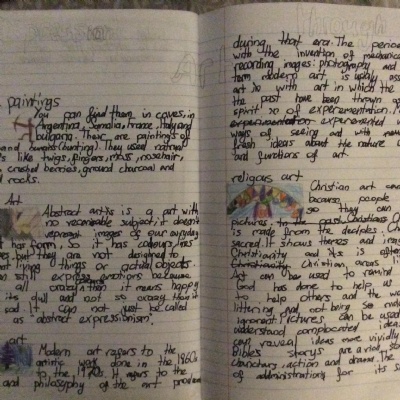 paintings
You can find them in caves, in
Argentina, Somalia, France, Italy and
Bulgaria. There are paintings of
and humans (hunting). They used natural
like twigs, fingers, moss, horsehair,
crushed berries, ground charcoal and
rocks.
Art
Abstract art is a art with
no recognisable subject, it doesn't
represent images of our everyday
has form, so it has colours, lines
but they are not designed to
living things or actual objects.
still express emotions because
all orange, it means happy
its dull and not so crazy then it
sad. It can not just be called
as "abstract expressionism".
art
Modern art refers to the
artistic work done in the 1860s
to the 1970s. It refers to the
and philosophy of the art produced
during that era. The period
with the invention of mechanical
recording images: photography and
term modern art is usually asso
art with art in which the
the past have been thrown as
spirit of experementation.
experemented
ways of seeing and with new
fresh ideas about the nature
and functions of art
religous art
Christian art can
because people
so they can
pictures to the past. Christians
is made from the deciples. Ch
sacred. It shows themes and
Christianity and its is often
Christianity Christian areas
Art can be used to remind
God has done to help us
to help others and the wo
littering and not being so
ignorant. Pictures can be used
understand complocated ideas
can reveal ideas more vividly
Bible's storys are a rich
action and drama. The
of administrations for its s